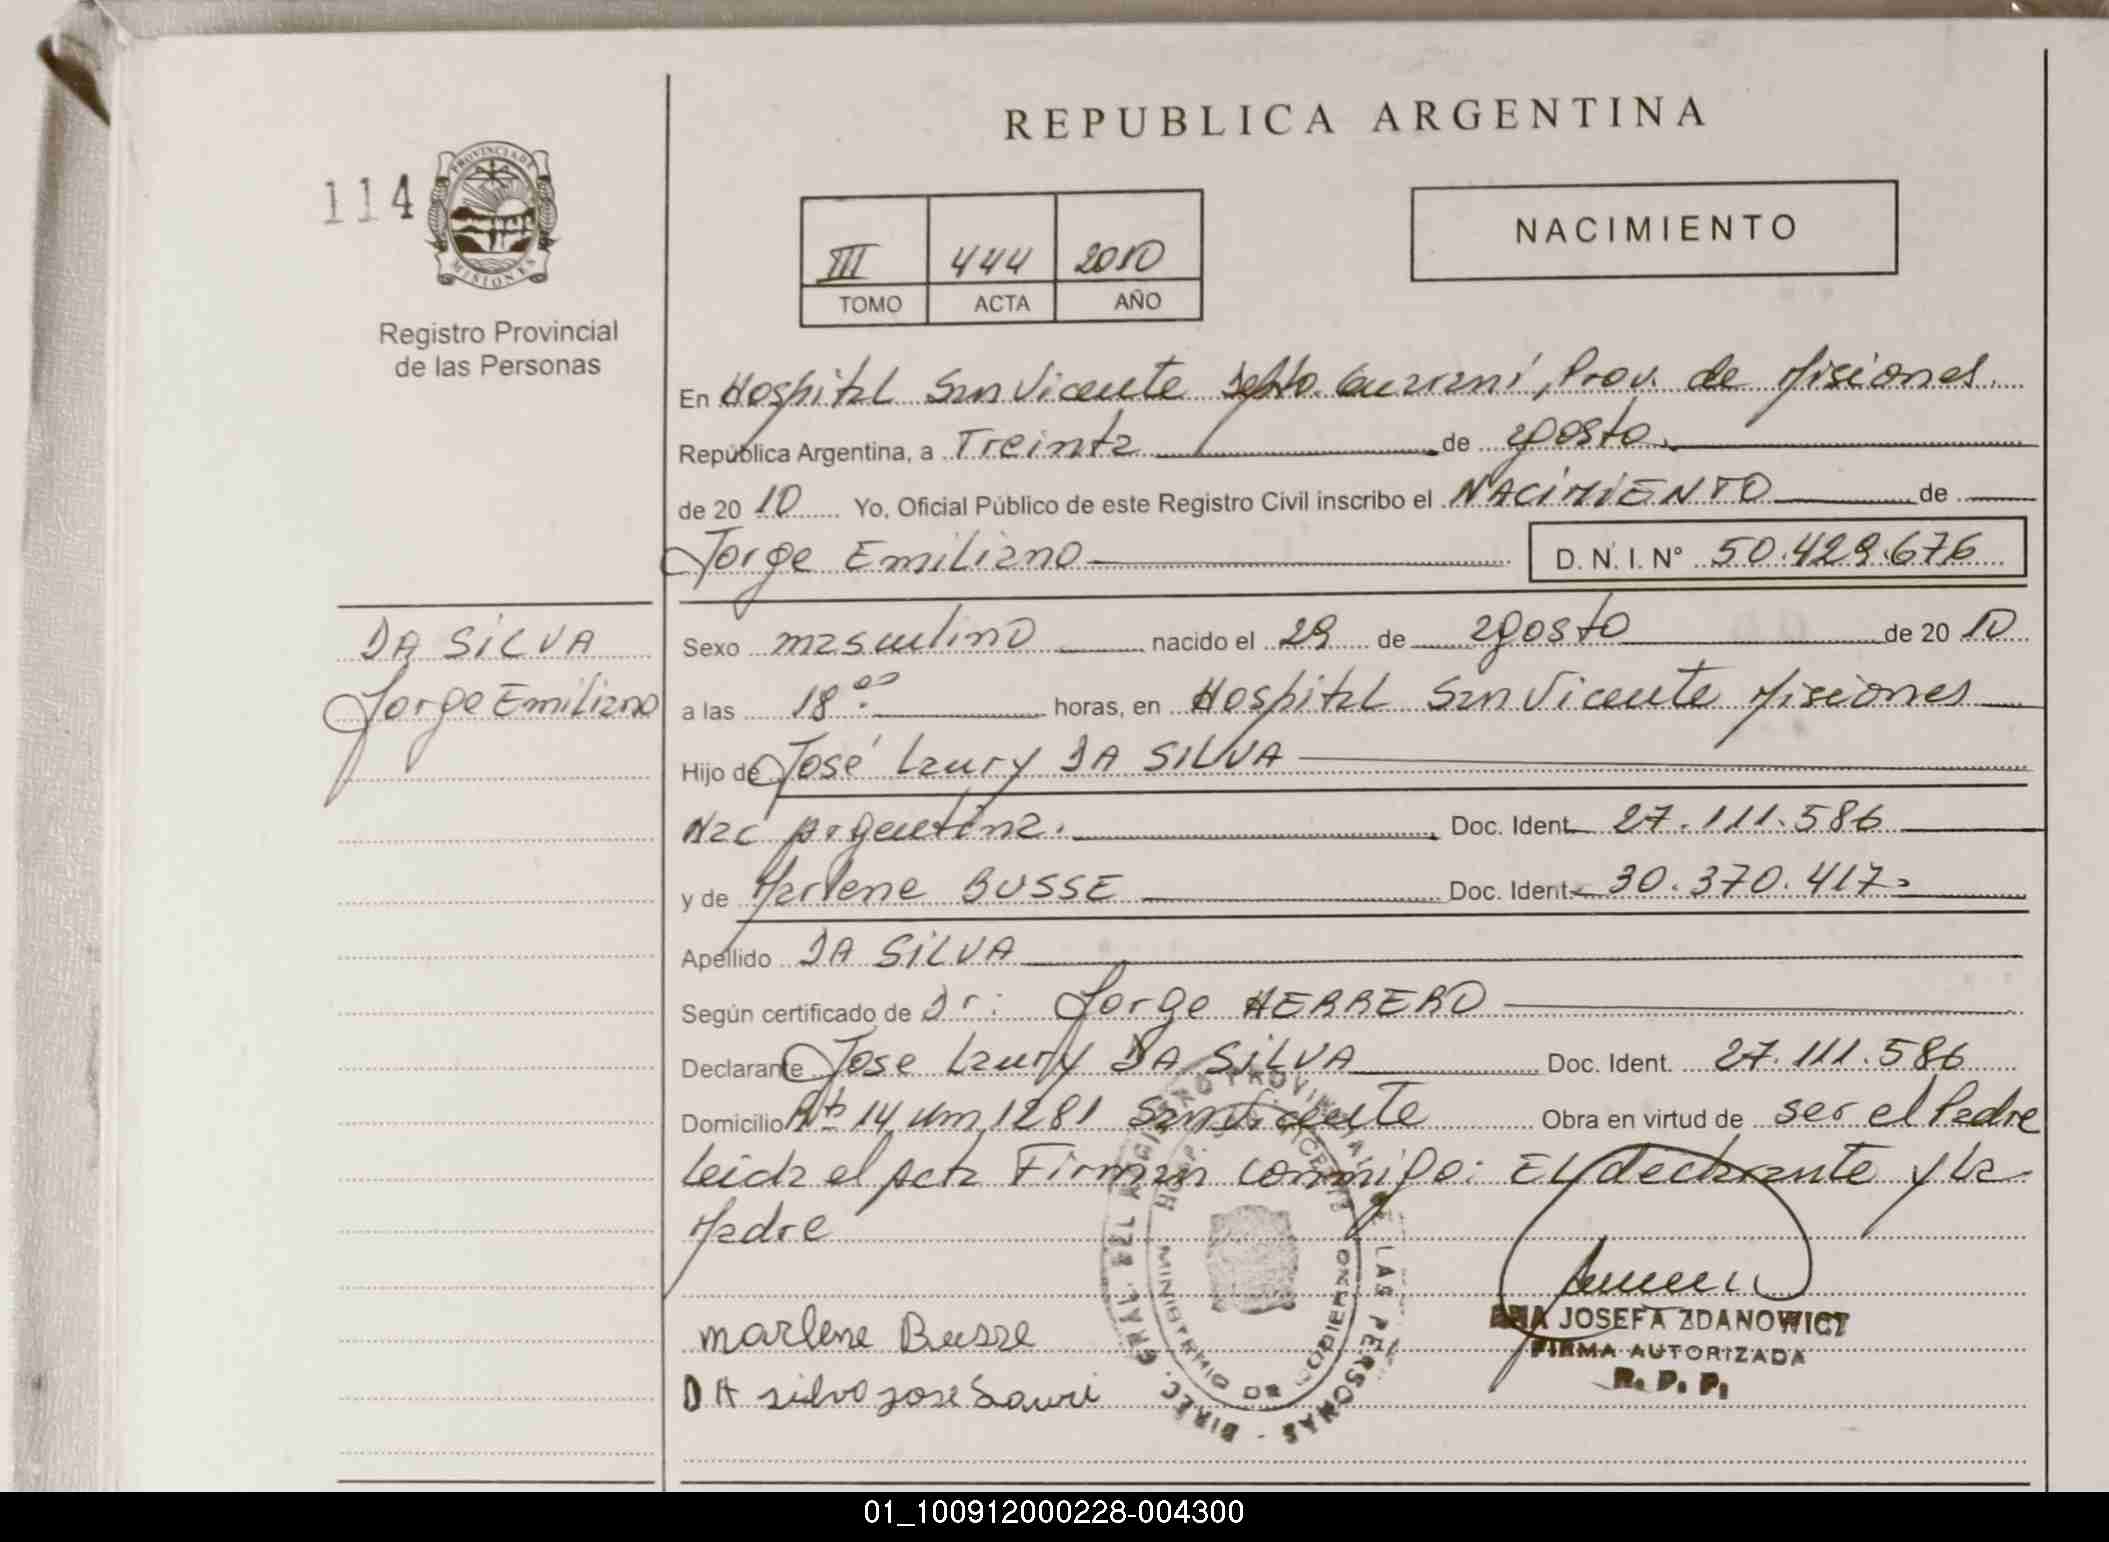 REPUBLICA ARGENTINA
114
PROVINCIA DE
MISIONES
Registro Provincial
de las Personas
III 444 2010
TOMO ACTA AÑO
NACIMIENTO
En Hospital San Vicente Depto. Guaraní, Prov. de Misiones.
República Argentina, a Treinta de agosto.
de 2010 Yo, Oficial Público de este Registro Civil inscribo el NACIMIENTO de
Jorge Emiliano D. N. I. N° 50.429.676
DA SILVA
Jorge Emiliano
Sexo masculino nacido el 29 de agosto de 2010
a las 18:00 horas, en Hospital San Vicente Misiones
Hijo de José Laury DA SILVA
Nac Argentina. Doc. Ident. 27.111.586
y de Marlene BUSSE Doc. Ident. 30.370.417
Apellido DA SILVA
Según certificado de Dr: Jorge HERRERO
Declarante Jose Laury DA SILVA Doc. Ident. 27.111.586
Domicilio 14 km 1281 San Vicente Obra en virtud de ser el Padre
Leida el Acta Firman conmigo: EL declarante y La
Madre
marlene Busse
DA silva jose Lauri
DIREC. GRAL. DEL REGISTRO PROVINCIAL DE LAS PERSONAS
HOSP. S. VICENTE
MINISTERIO DE GOBIERNO
JOSEFA ZDANOWICZ
FIRMA AUTORIZADA
R. P. P.
01_100912000228-004300